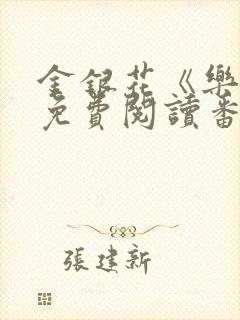 金銀花《樂
免費閱讀番
張建新